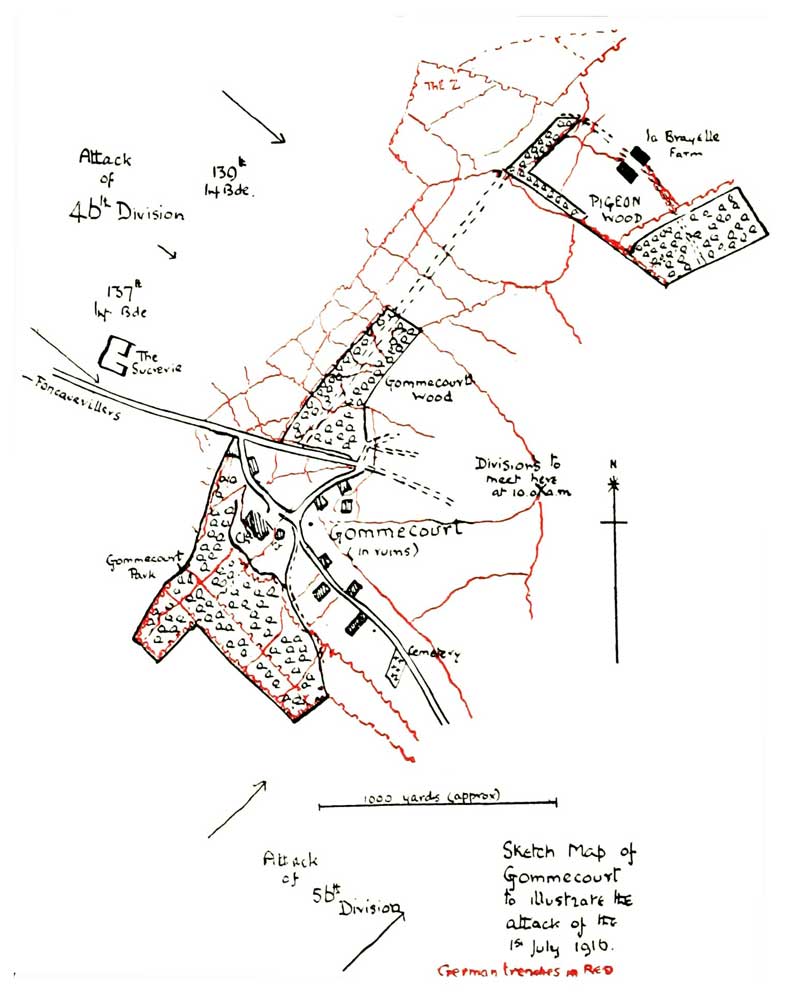 THE Z
la Brayelle
Farm
Attack
of
46th Division
139th
Inf Bde.
PIGEON
WOOD
137th
Inf Bde
The
Sucrerie
Foncquevillers
Gommecourt
Wood
Divisions to
meet here
at 10.0 a.m
N
Gommecourt
(in ruins)
Ch
Gommecourt
Park
Cemetery
1000 yards (approx)
Attack
of
56th
Division
Sketch Map of
Gommecourt
to illustrate the
attack of the
1st July 1916.
German trenches in RED